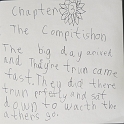 Chapter
The Compitishon
The big day arived
and Indy're trun came
fast. They did there
trun perfortly and sat
down to wacth the
athers go.